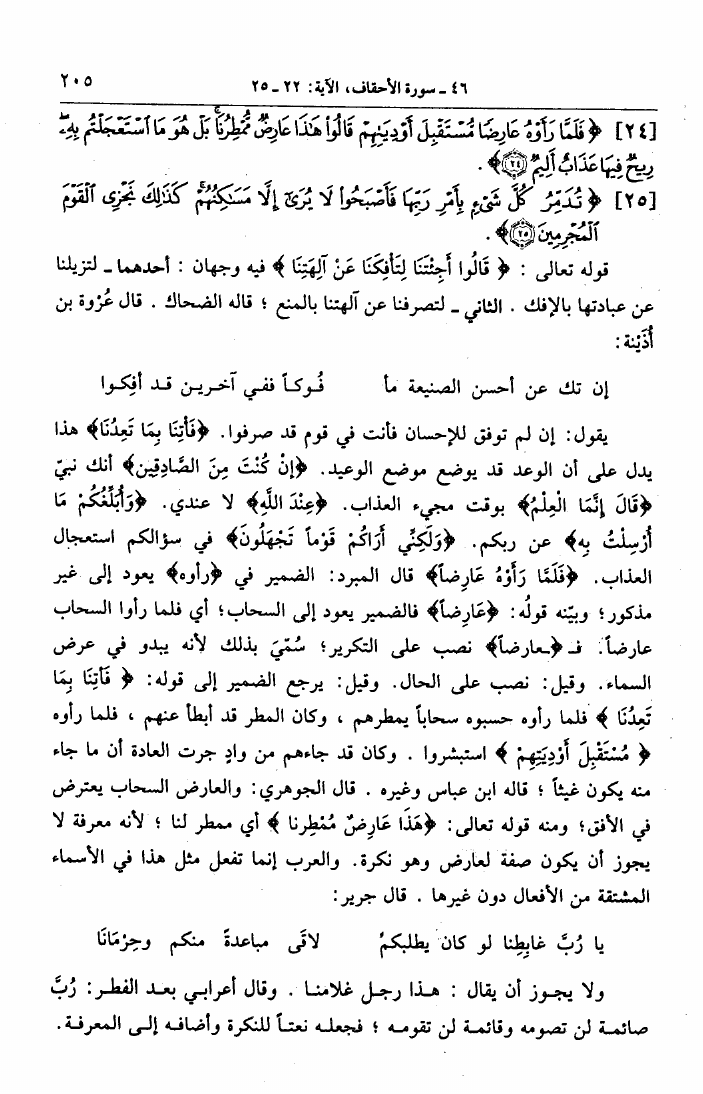 ٤٦ ـ سورة الأحقاف، الآية: ٢٢ ـ ٢٥ ٢٠٥
[٢٤] ﴿ فَلَمَّا رَأَوْهُ عَارِضًا مُّسْتَقْبِلَ أَوْدِيَتِهِمْ قَالُوا۟ هَـٰذَا عَارِضٌ مُّمْطِرُنَا ۚ بَلْ هُوَ مَا ٱسْتَعْجَلْتُم بِهِۦ ۖ
رِيحٌ فِيهَا عَذَابٌ أَلِيمٌ ﴿٢٤﴾﴾ .
[٢٥] ﴿ تُدَمِّرُ كُلَّ شَىْءٍۭ بِأَمْرِ رَبِّهَا فَأَصْبَحُوا۟ لَا يُرَىٰٓ إِلَّا مَسَـٰكِنُهُمْ ۚ كَذَٰلِكَ نَجْزِى ٱلْقَوْمَ
ٱلْمُجْرِمِينَ ﴿٢٥﴾﴾ .
قوله تعالى : ﴿ قَالُوا أَجِئْتَنَا لِتَأْفِكَنَا عَنْ آلِهَتِنَا ﴾ فيه وجهان : أحدهما ـ لتزيلنا
عن عبادتها بالإفك . الثاني ـ لتصرفنا عن آلهتنا بالمنع ؛ قاله الضحاك . قال عُرْوة بن
أُذَيْنة :
إن تك عن أحسن الصنيعة مأ فُوكاً ففي آخرين قد أفِكوا
يقول: إن لم توفق للإحسان فأنت في قوم قد صرفوا. ﴿فَأْتِنَا بِمَا تَعِدُنَا﴾ هذا
يدل على أن الوعد قد يوضع موضع الوعيد. ﴿إِنْ كُنْتَ مِنَ الصَّادِقِين﴾ أنك نبيّ
﴿قَالَ إِنَّمَا الْعِلْمُ﴾ بوقت مجيء العذاب. ﴿عِنْدَ اللَّهِ﴾ لا عندي. ﴿وَأُبَلِّغُكُمْ مَا
أُرْسِلْتُ بِه﴾ عن ربكم. ﴿وَلَكِنِّي أَرَاكُمْ قَوْماً تَجْهَلُونَ﴾ في سؤالكم استعجال
العذاب. ﴿فَلَمَّا رَأَوْهُ عَارِضاً﴾ قال المبرد: الضمير في ﴿رأوه﴾ يعود إلى غير
مذكور؛ وبيّنه قولُه: ﴿عَارِضاً﴾ فالضمير يعود إلى السحاب؛ أي فلما رأوا السحاب
عارضاً. فـ ﴿ـعارضاً﴾ نصب على التكرير؛ سُمّيَ بذلك لأنه يبدو في عرض
السماء. وقيل: نصب على الحال. وقيل: يرجع الضمير إلى قوله: ﴿ فَأْتِنَا بِمَا
تَعِدُنَا ﴾ فلما رأوه حسبوه سحاباً يمطرهم ، وكان المطر قد أبطأ عنهم ، فلما رأوه
﴿ مُسْتَقْبِلَ أَوْدِيَتِهِمْ ﴾ استبشروا . وكان قد جاءهم من وادٍ جرت العادة أن ما جاء
منه يكون غيثاً ؛ قاله ابن عباس وغيره . قال الجوهري: والعارض السحاب يعترض
في الأفق؛ ومنه قوله تعالى: ﴿هَذَا عَارِضٌ مُمْطِرنا ﴾ أي ممطر لنا ؛ لأنه معرفة لا
يجوز أن يكون صفة لعارض وهو نكرة. والعرب إنما تفعل مثل هذا في الأسماء
المشتقة من الأفعال دون غيرها . قال جرير:
يا رُبَّ غابِطِنا لو كان يطلبكمْ لاقَى مباعدةً منكم وحِرْمَانَا
ولا يجوز أن يقال : هذا رجل غلامنا . وقال أعرابي بعد الفطر: رُبَّ
صائمة لن تصومه وقائمة لن تقومه ؛ فجعله نعتاً للنكرة وأضافه إلى المعرفة.